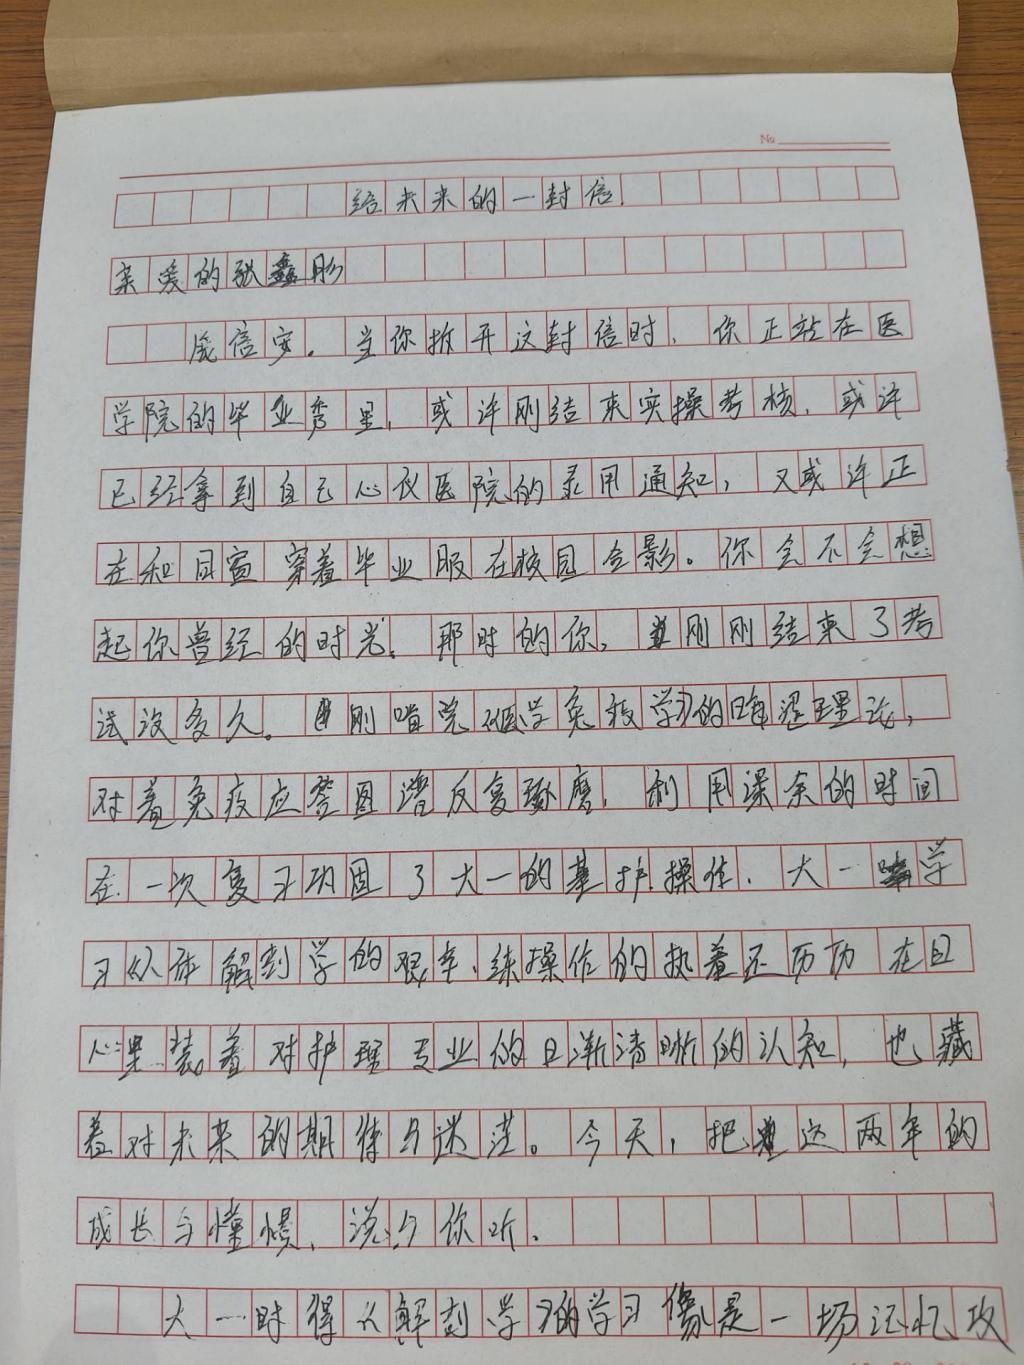 No
给未来的一封信
亲爱的张鑫彤
展信安。当你拆开这封信时、你正站在医
学院的毕业秀里,或许刚结束实操考核、或许
已经拿到自己心仪医院的录用通知,又或许正
在和同窗穿着毕业服在校园合影。你会不会想
起你曾经的时光、那时的你,刚刚结束了考
试没多久。刚啃完医学免疫学的晦涩理论,
对着免疫应答图谱反复琢磨,利用课余的时间
在一次复习巩固了大一的基护操作、大一学
习人体解剖学的艰辛、练操作的执着还历历在目
心里装着对护理专业的日渐清晰的认知,也藏
着对未来的期待与迷茫。今天,把这两年的
成长与憧憬、说与你听、
大一时得人解剖学的学习像是一场记忆攻